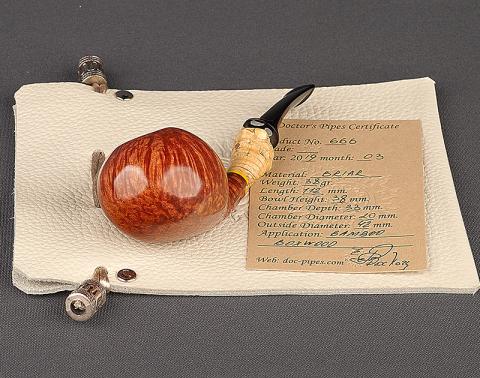 Doctor's Pipes Certificate
Product No. 666
Grade:
Year: 2019 month: 03
Material: BRIAR
Weight: 38 gr.
Length: 112 mm.
Bowl Height: 38 mm.
Chamber Depth: 33 mm.
Chamber Diameter: 20 mm.
Outside Diameter: 42 mm.
Application: BAMBOO
BOXWOOD
Web: doc-pipes.com